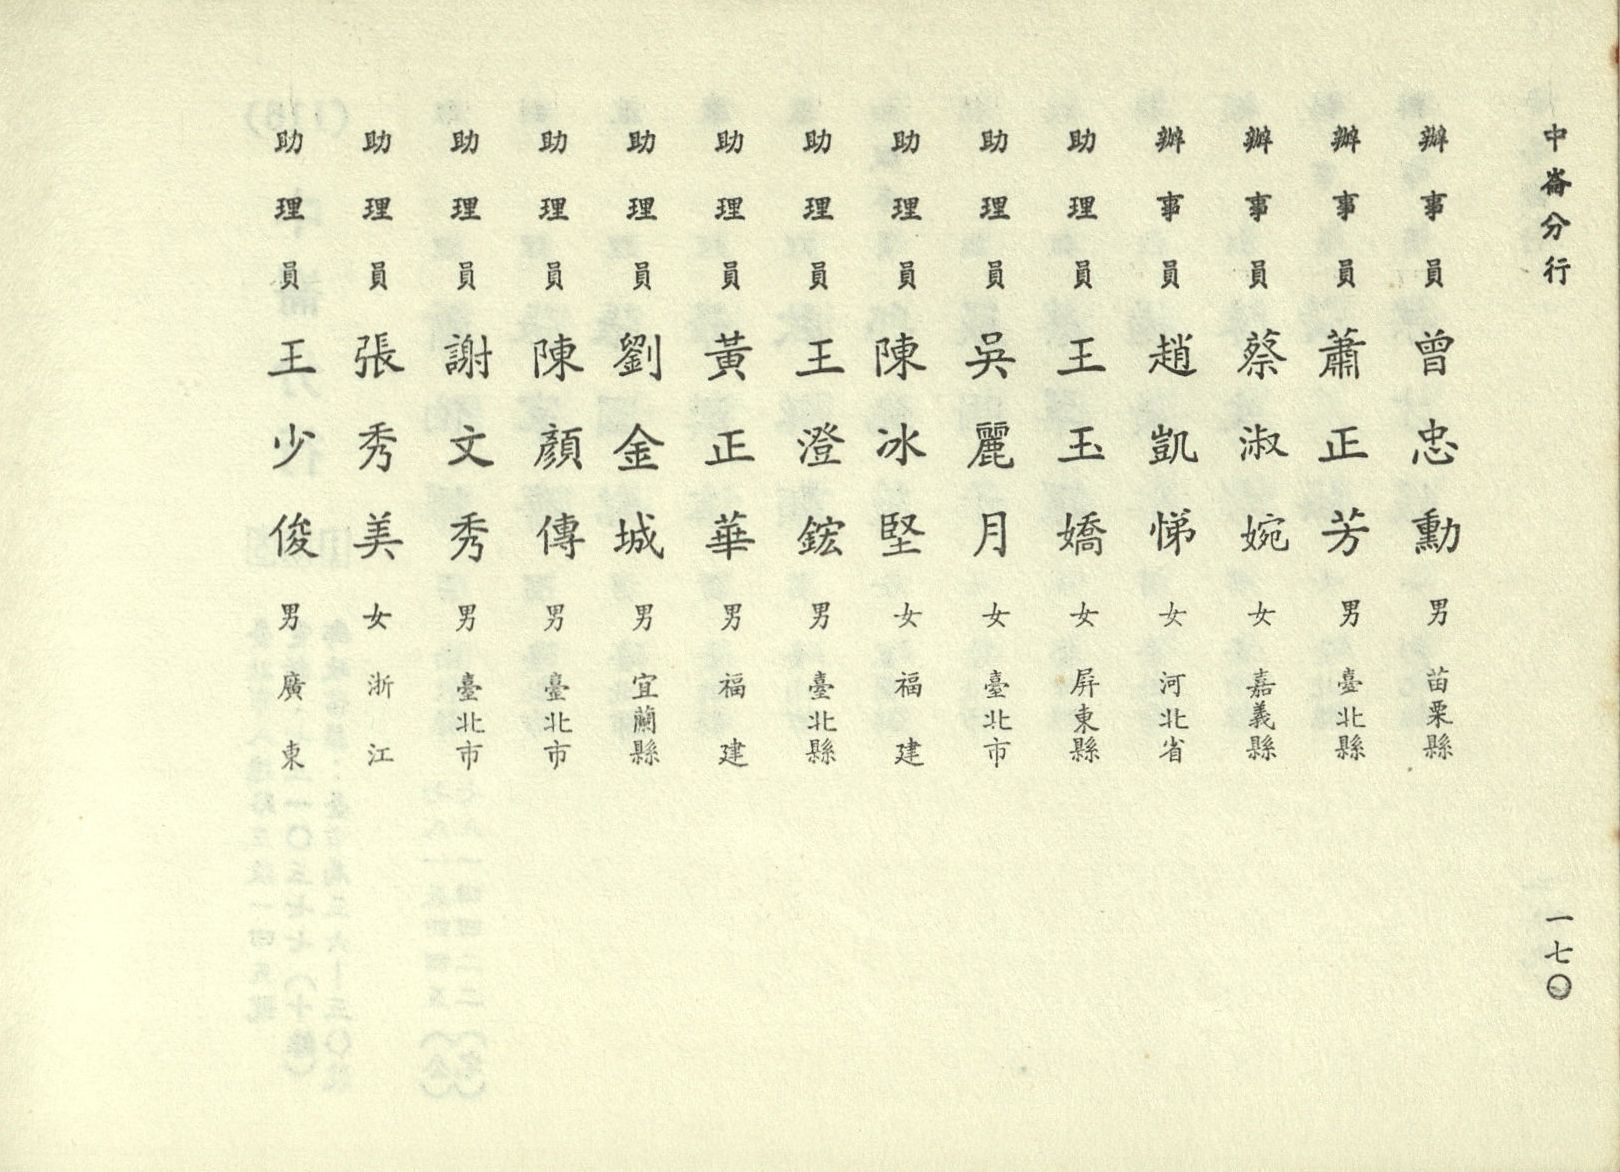 中崙分行
一七〇
辦事員 曾忠勳 男 苗栗縣
辦事員 蕭正芳 男 臺北縣
辦事員 蔡淑婉 女 嘉義縣
辦事員 趙凱悌 女 河北省
助理員 王玉嬌 女 屏東縣
助理員 吳麗月 女 臺北市
助理員 陳冰堅 女 福建
助理員 王澄鋐 男 臺北縣
助理員 黃正華 男 福建
助理員 劉金城 男 宜蘭縣
助理員 陳顏傳 男 臺北市
助理員 謝文秀 男 臺北市
助理員 張秀美 女 浙江
助理員 王少俊 男 廣東